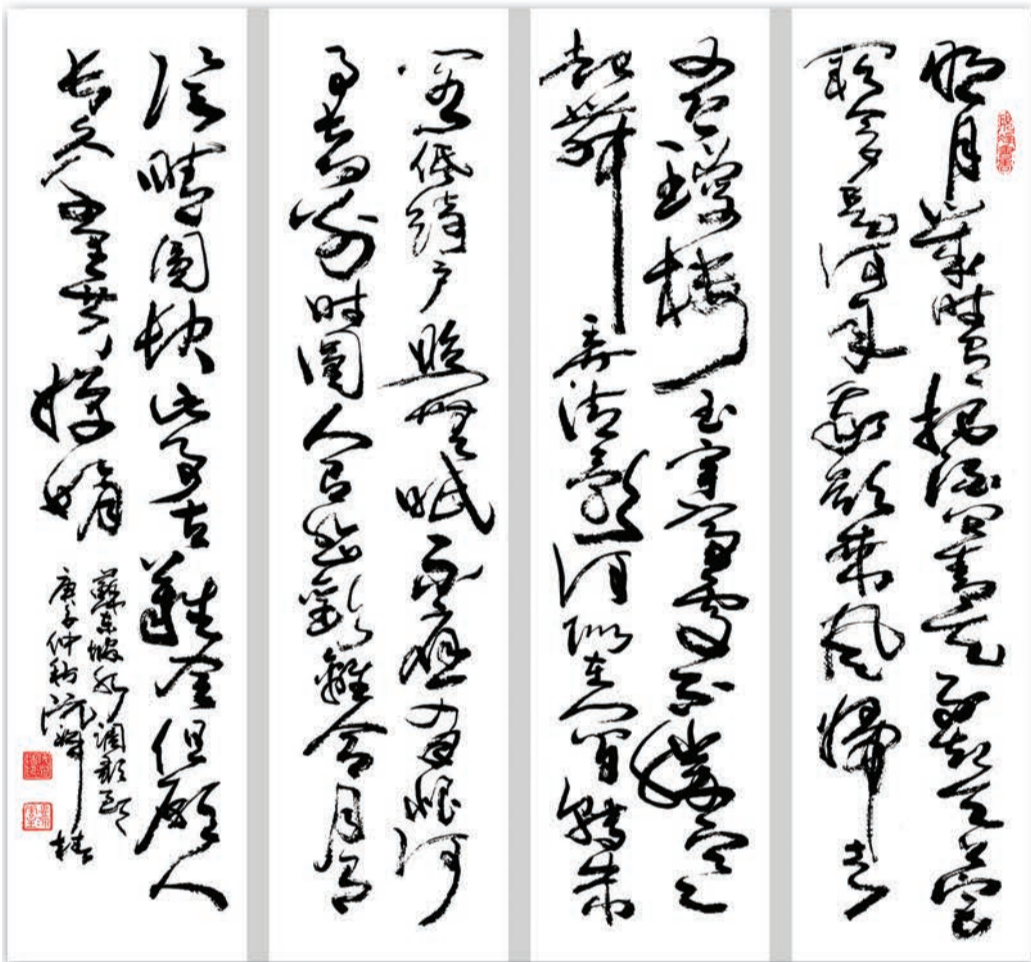 明月幾時有把酒問青天不知天上宮
闕今夕是何年我欲乘風歸去
又恐瓊樓玉宇高處不勝寒
起舞弄清影何似在人間轉朱
閣低綺戶照無眠不應有恨何
事長向別時圓人有悲歡離合月有
陰晴圓缺此事古難全但願人
長久千里共嬋娟
蘇東坡水調歌頭
庚子仲秋